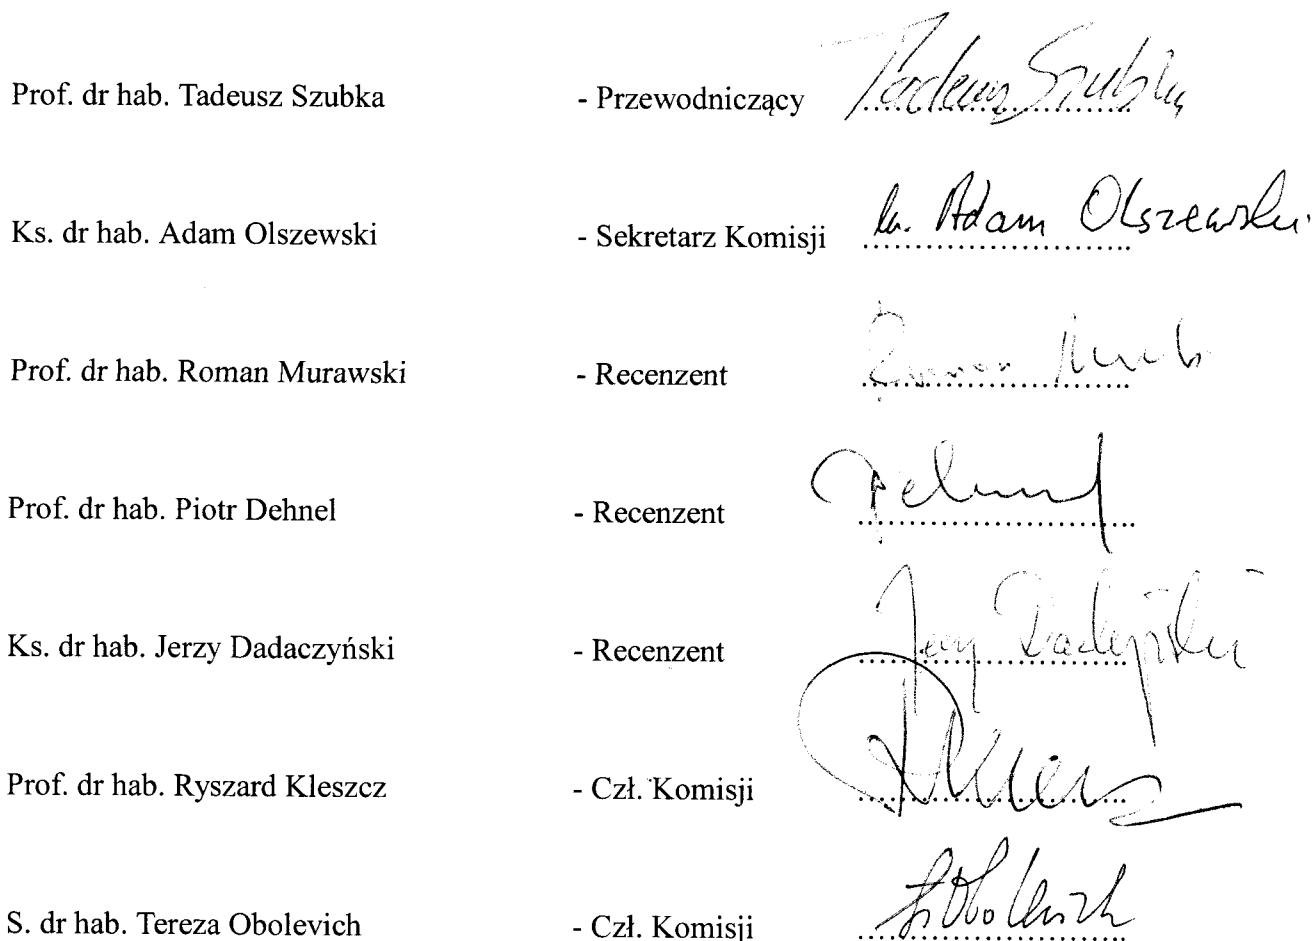 Prof. dr hab. Tadeusz Szubka - Przewodniczący Tadeusz Szubka
Ks. dr hab. Adam Olszewski - Sekretarz Komisji ks. Adam Olszewski
Prof. dr hab. Roman Murawski - Recenzent Roman
Prof. dr hab. Piotr Dehnel - Recenzent Dehnel
Ks. dr hab. Jerzy Dadaczyński - Recenzent Jerzy
Prof. dr hab. Ryszard Kleszcz - Czł. Komisji
S. dr hab. Tereza Obolevich - Czł. Komisji TObolevich